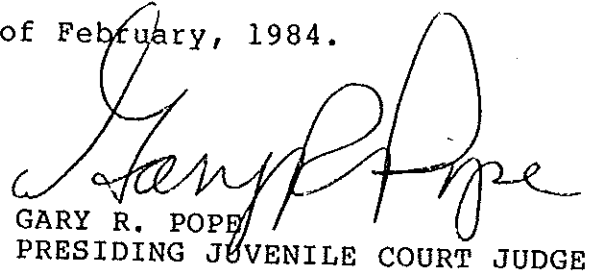 of February, 1984.
Gary R Pope
GARY R. POPE
PRESIDING JUVENILE COURT JUDGE